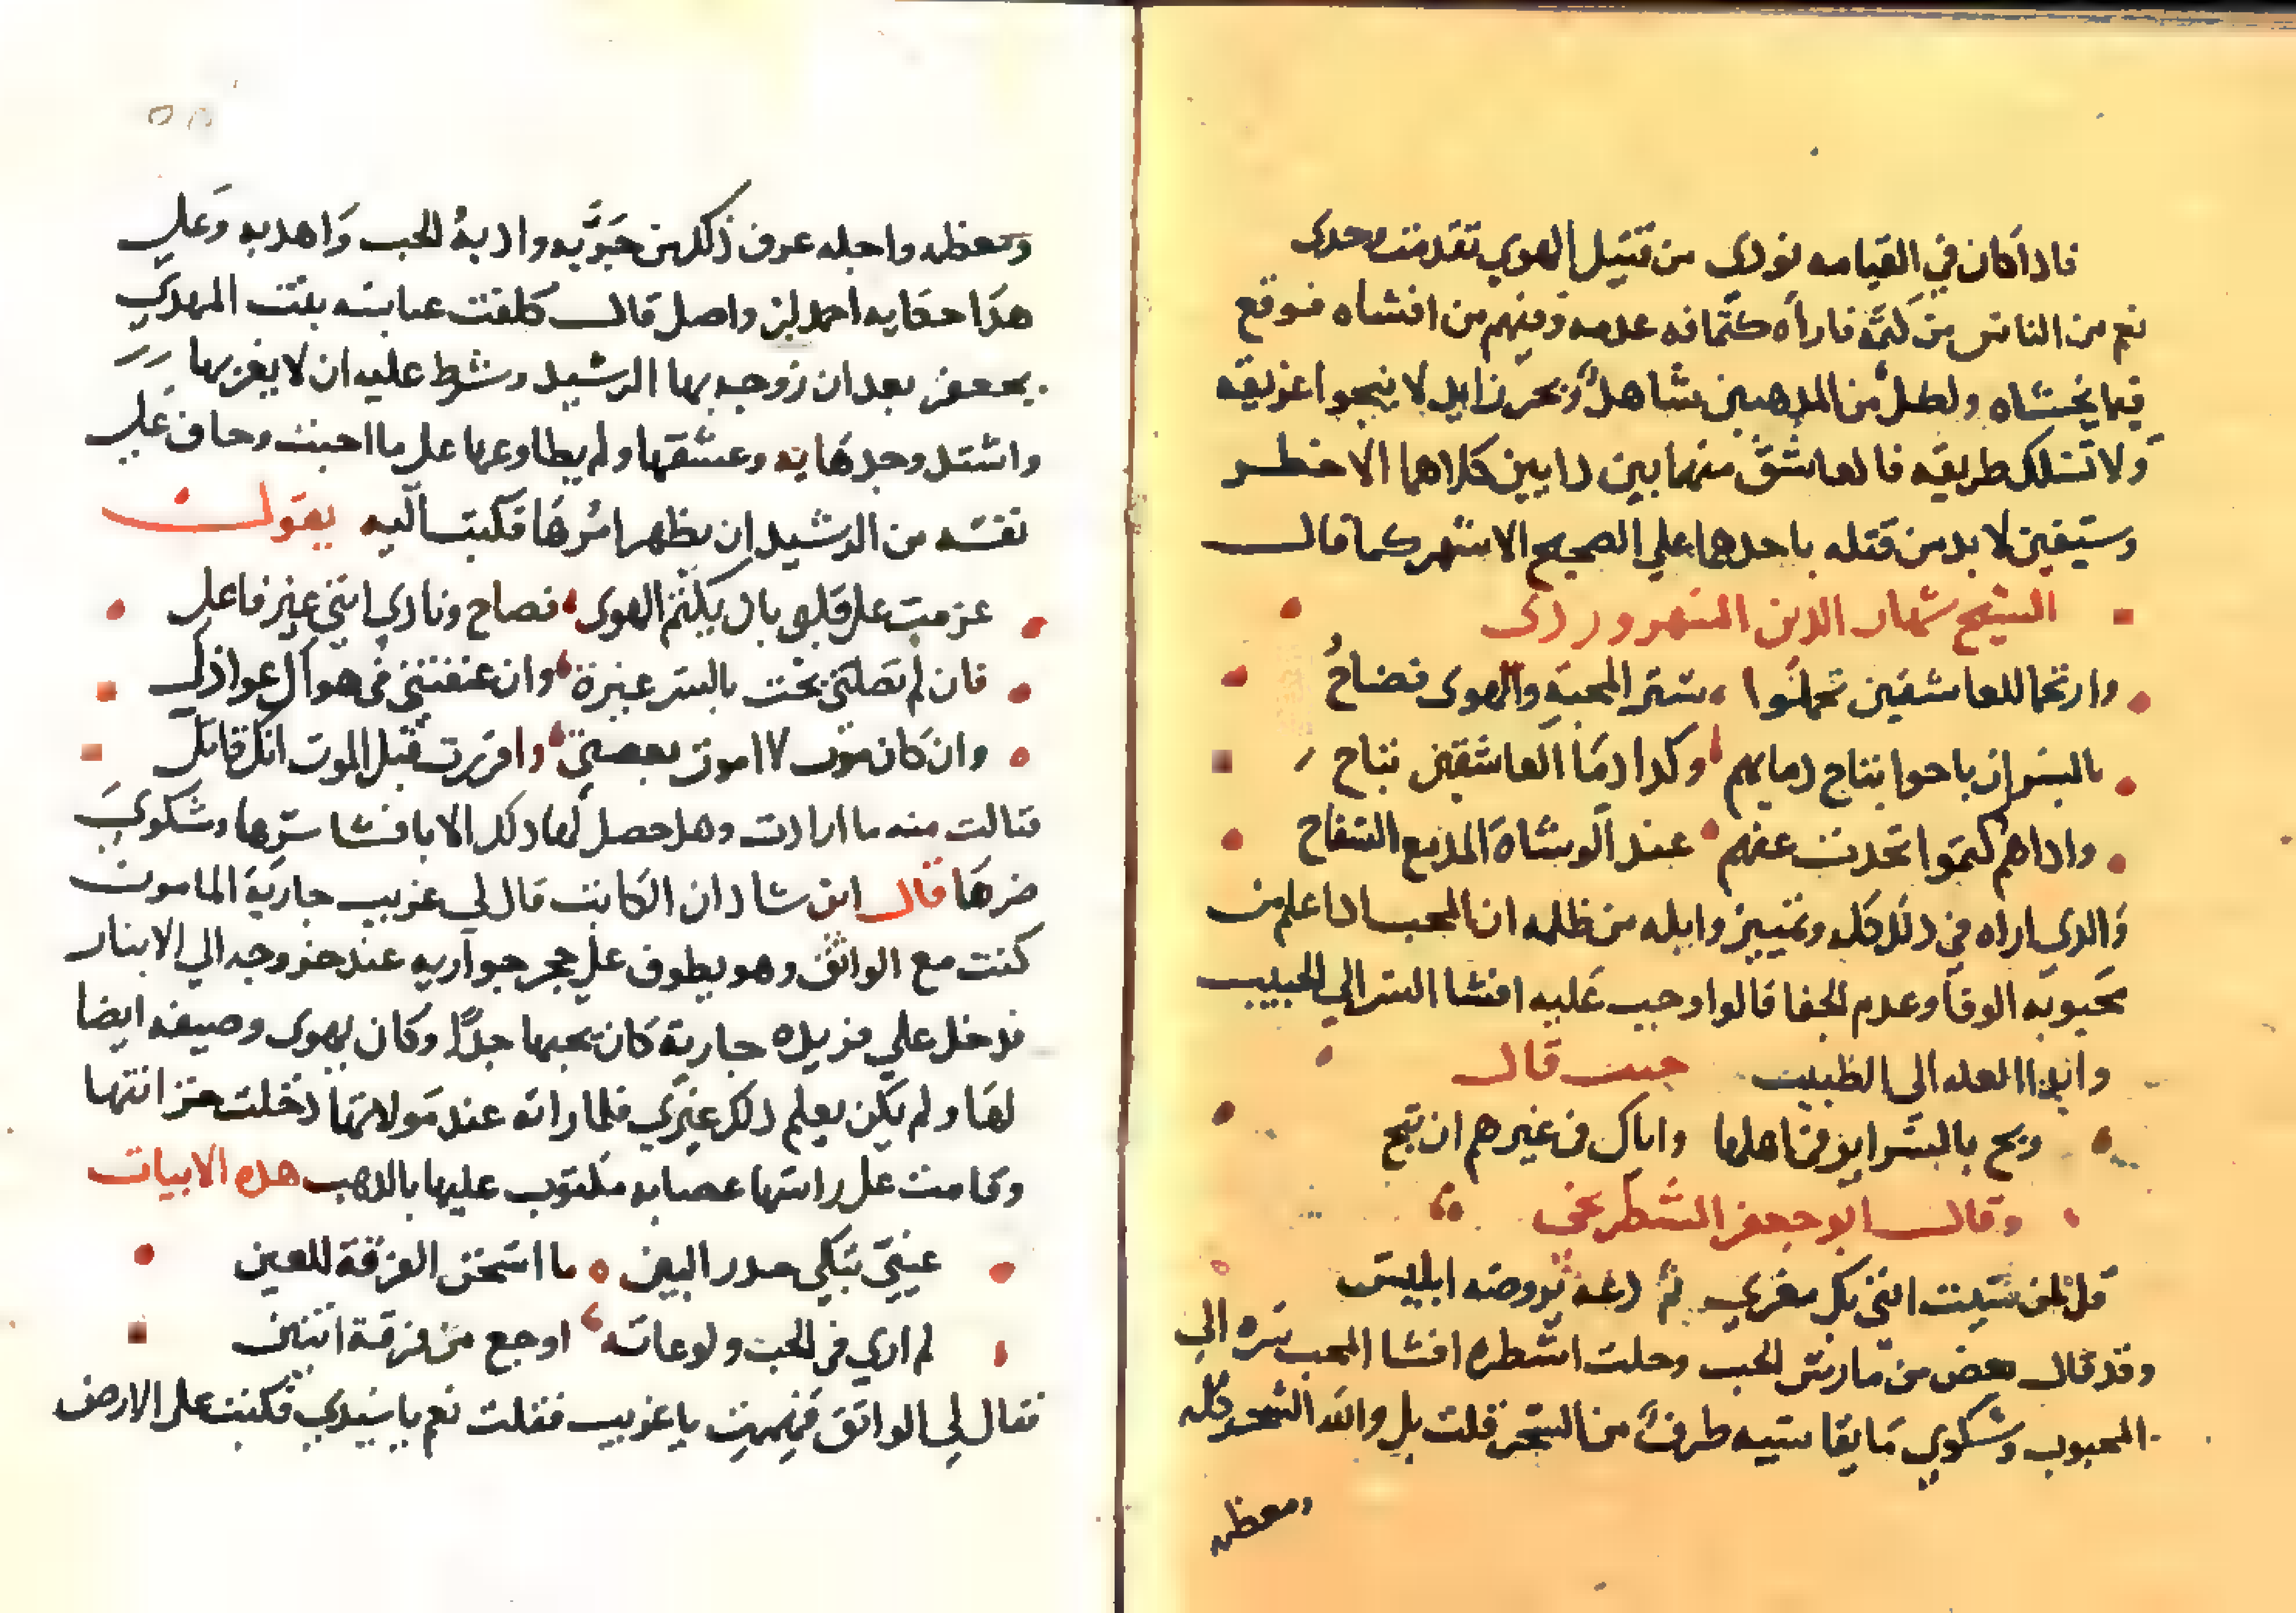 فاداكان في القيامه نودي من قتيل الهوي تقدمت وحدي
نعم من الناس من كتمه فاراه كتمانه عدمه ومنهم من افشاه فوقع
فيما يخشاه ولطل من المدهبين شاهد وبحر زايد لا ينجوا غريقه
ولا تسلك طريقه فالعاشق منهما بين دايين كلاهما الاخطر
وسيفين لا بد من قتله باحدهما علي الصحيح الاشهر كما قال
الشيخ شهاب الدين السهروردي
وارحمتا للعاشقين تحملوا ستر المحبة والهوى فضاح
بالسر ان باحوا تباح دمايهم وكدا دما العاشقين تباح
واداهم كتموا تحدث عنهم عند الوشاة المدمع السفاح
والدي اراه في دلك كله وتمييز وابله من ظله ان المحب ادا علم من
محبوبه الوفا وعدم الجفا قالوا وجب عليه افشا السر الي الحبيب
وانها العله الي الطبيب حيث قال
وبح بالسر ايو في اهلها واياك في غيرهم ان تبح
وقال ابو جعفر الشطرنجي
قل لمن شيت انني بك مغري ثم دعه يروضه ابليس
وقد قال بعض من مارس الحب وحلب اشطره افشا المحب سره الي
المحبوب وشكوي ما يقاسيه طرفا من السحر قلت بل والله السحر كله
ومعظمه
ومعظمه واجله عرف ذلك من جربه وادبه الحب واهدبه وعلي
هدا حكايه احمد بن واصل قال كلفت عباسه بنت المهدي
بجعفر بعد ان زوجه بها الرشيد وشرط عليه ان لا يقربها
واشتد وجدها به وعشقها ولم يطاوعها علي ما احبت وخاف علي
نفسه من الرشيد ان يظهر امرها فكتبت اليه يقولت
عزمت على قلبي بان يكتم الهوى فصاح ونادي انني غير فاعل
فان لم تصلني بحت بالسر عنوة وان عنفتني في هواك عواذلي
وان كان موت لا اموت بغصتي واقررت قبل الموت انك قاتل
فنالت منه ما ارادت وهل حصل لها دلك الا بافشا سرها وشكوي
ضرها قال ابن شادان الكاتب قال لي عريب جارية المامون
كنت مع الواثق وهو يطوف على حجر جواريه عند خروجه الي الانبار
فدخل علي فريده جارية كان يحبها جدا وكان يهوى وصيفه ايضا
لها ولم يكن يعلم دلك غيري فلما راته عند مولاتها دخلت خزانتها
وقامت على راسها عصابه مكتوب عليها بالدهب هده الابيات
عيني تبكي حدر البين ما اسخن الفرقة للعين
لم اري في الحب ولوعاته اوجع من فرقة اتنين
فقال لي الواتق فهمت يا عريب فقلت نعم يا سيدي فكتبت على الارض